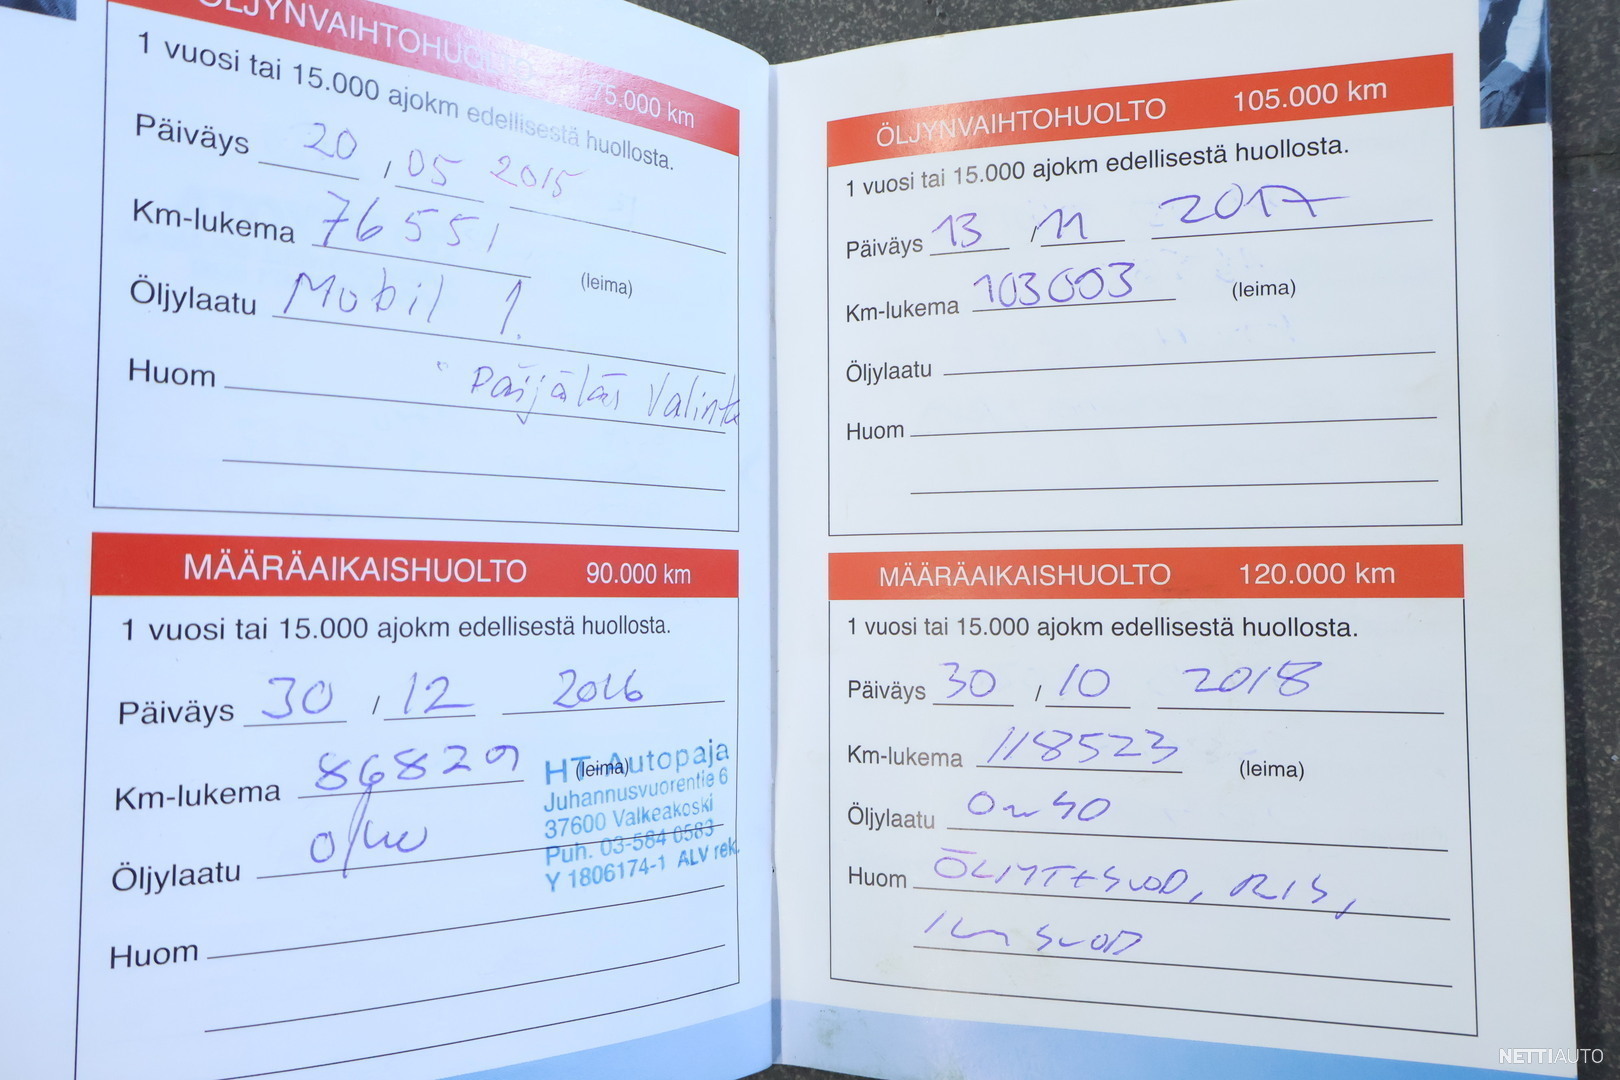 ÖLJYNVAIHTOHUOLTO 75.000 km
1 vuosi tai 15.000 ajokm edellisestä huollosta.
Päiväys 20 / 05 2015
Km-lukema 76551
(leima)
Öljylaatu Mobil 1.
Huom Päijätäs Valinta
MÄÄRÄAIKAISHUOLTO 90.000 km
1 vuosi tai 15.000 ajokm edellisestä huollosta.
Päiväys 30 / 12 2016
Km-lukema 86829
(leima)
HT Autopaja
Juhannusvuorentie 6
37600 Valkeakoski
Puh. 03-584 0583
Y 1806174-1 ALV rek.
Öljylaatu
Huom
ÖLJYNVAIHTOHUOLTO 105.000 km
1 vuosi tai 15.000 ajokm edellisestä huollosta.
Päiväys 13 / 11 2017
Km-lukema 103003
(leima)
Öljylaatu
Huom
MÄÄRÄAIKAISHUOLTO 120.000 km
1 vuosi tai 15.000 ajokm edellisestä huollosta.
Päiväys 30 / 10 2018
Km-lukema 118523
(leima)
Öljylaatu
Huom
NETTIAUTO